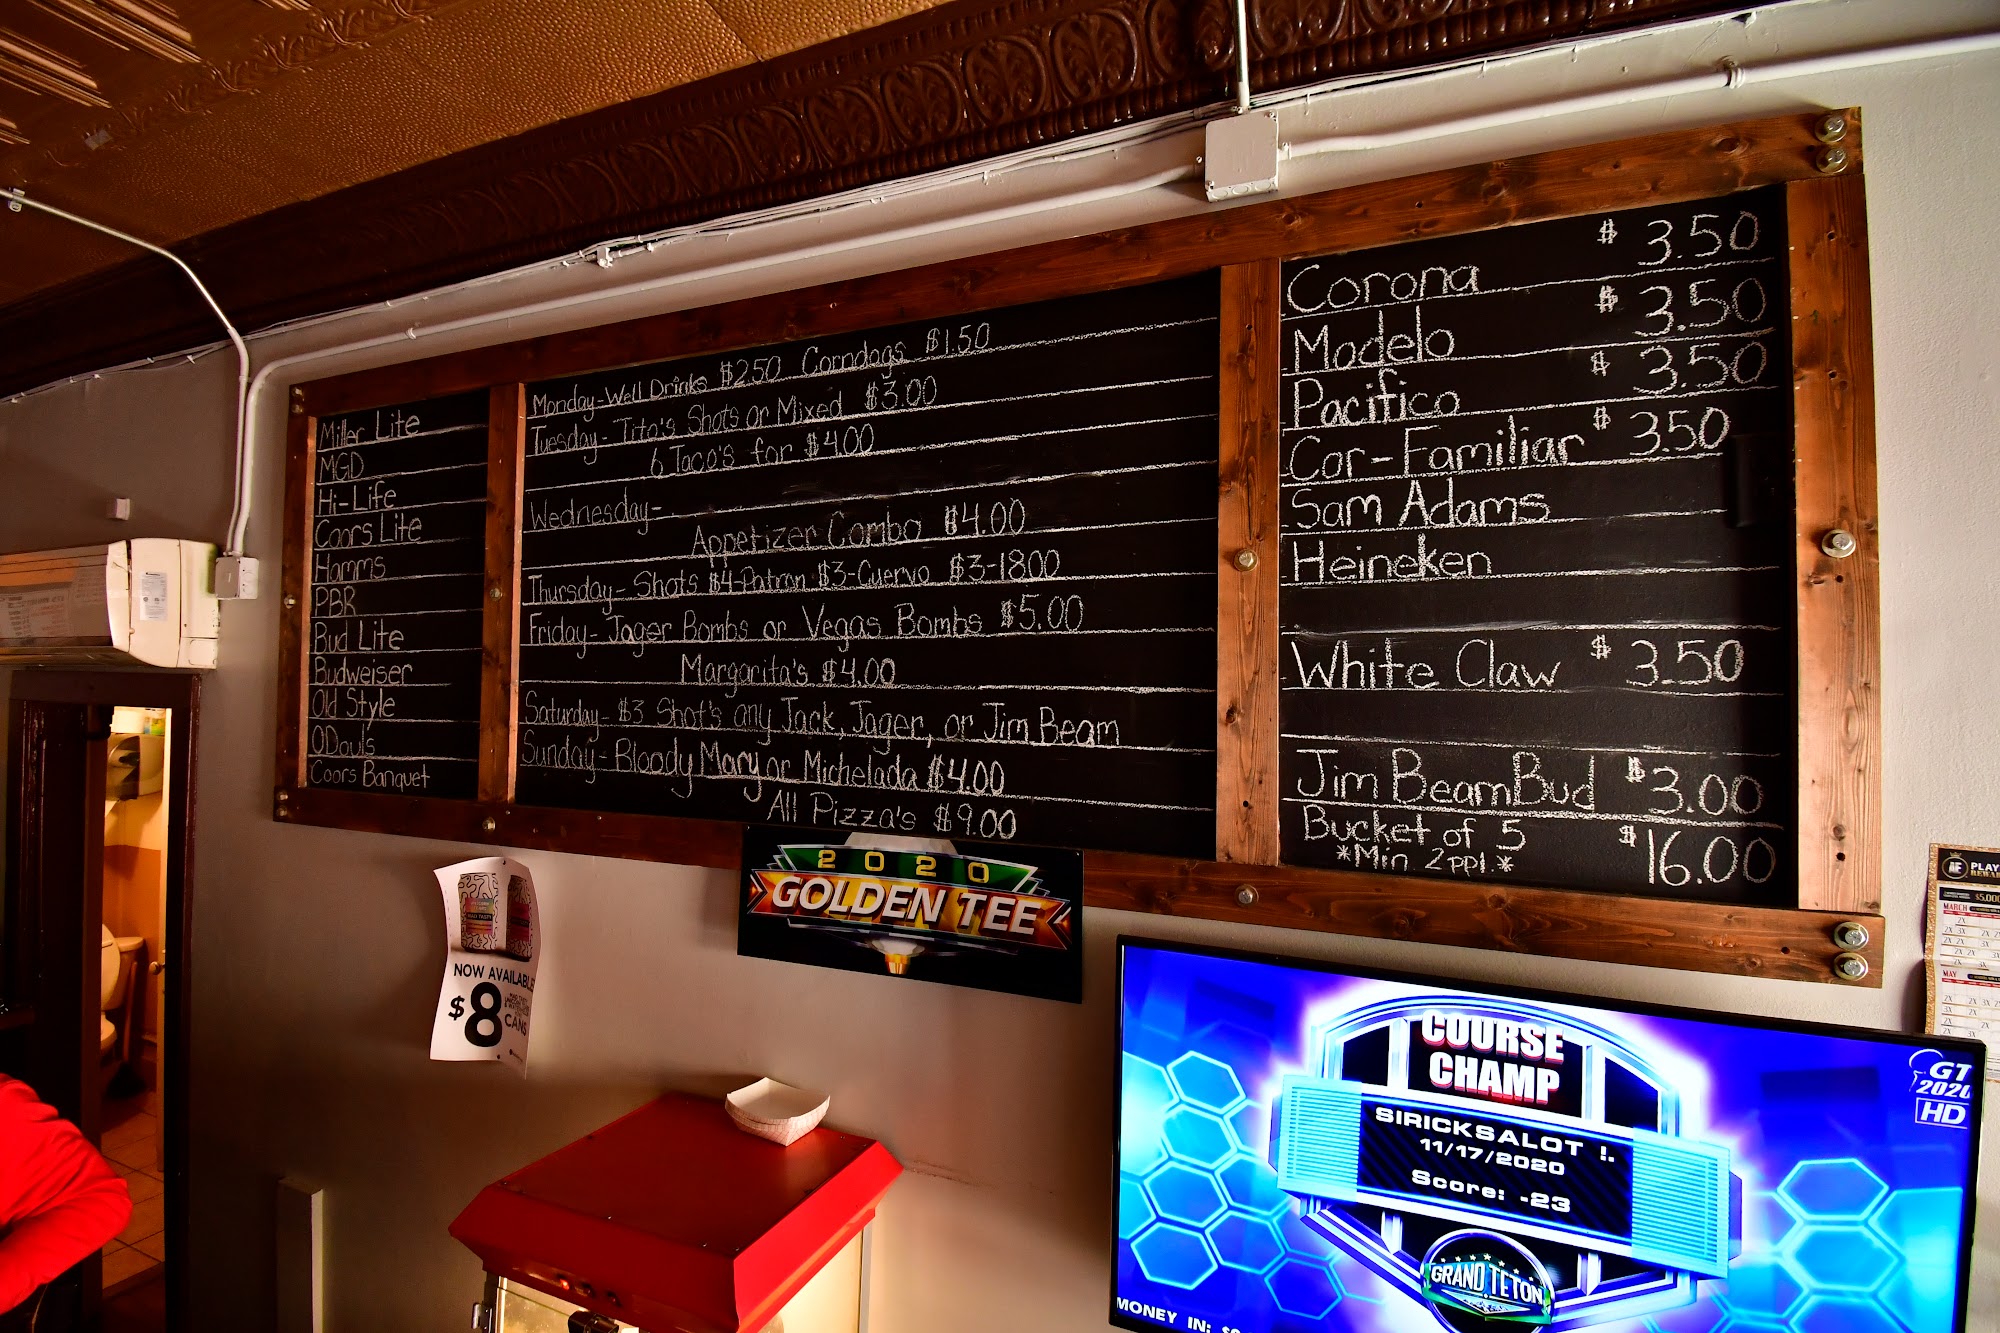 Miller Lite
MGD
Hi-Life
Coors Lite
Hamms
PBR
Bud Lite
Budweiser
Old Style
ODouls
Coors Banquet
Monday-Well Drinks $2.50 Corndogs $1.50
Tuesday-Tito's Shots or Mixed $3.00
6 Taco's for $4.00
Wednesday-
Appetizer Combo $4.00
Thursday-Shots $4-Patron $3-Cuervo $3-1800
Friday-Jager Bombs or Vegas Bombs $5.00
Margarita's $4.00
Saturday-$3 Shot's any Jack, Jager, or Jim Beam
Sunday-Bloody Mary or Michelada $4.00
All Pizza's $9.00
Corona $3.50
Modelo $3.50
Pacifico $3.50
Cor-Familiar $3.50
Sam Adams
Heineken
White Claw $3.50
Jim Beam Bud $3.00
Bucket of 5 $16.00
*Min. 2ppl.*
2020
GOLDEN TEE
NOW AVAILABLE
$8
CANS
COURSE
CHAMP
SIRICKSALOT !.
11/17/2020
Score: -23
GRAND TETON
GT
2020
HD
MONEY IN:
PLAY
REWAR
$5,000
MARCH
MAY